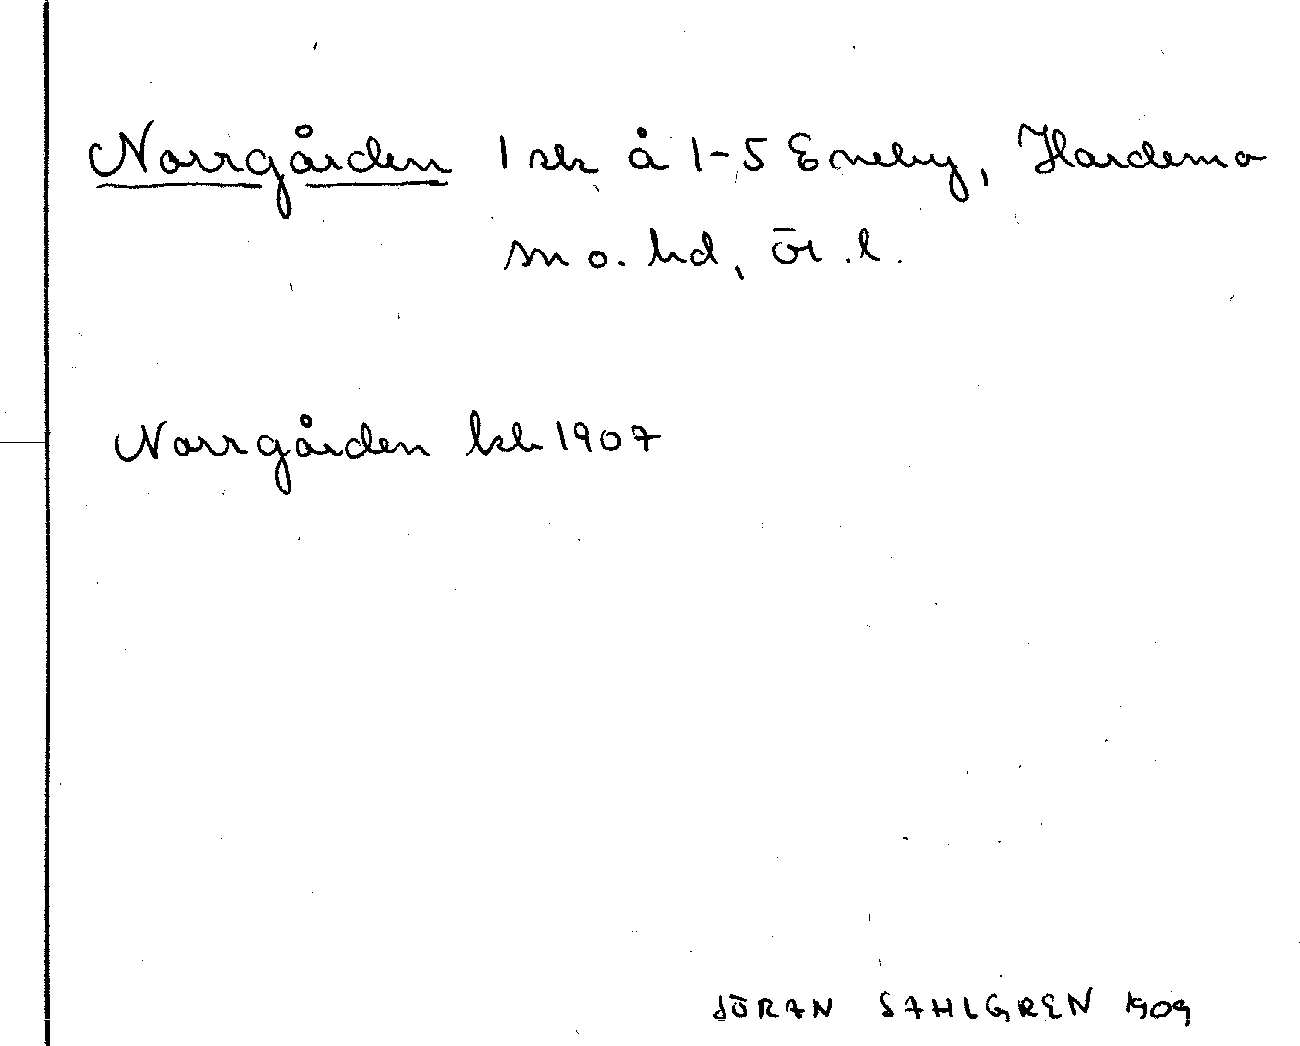 Norrgården 1 sk å 1-5 Eneby, Hardemo
sn o. hd, Ör. l.
Norrgården kb 1907
JÖRAN SAHLGREN 1909